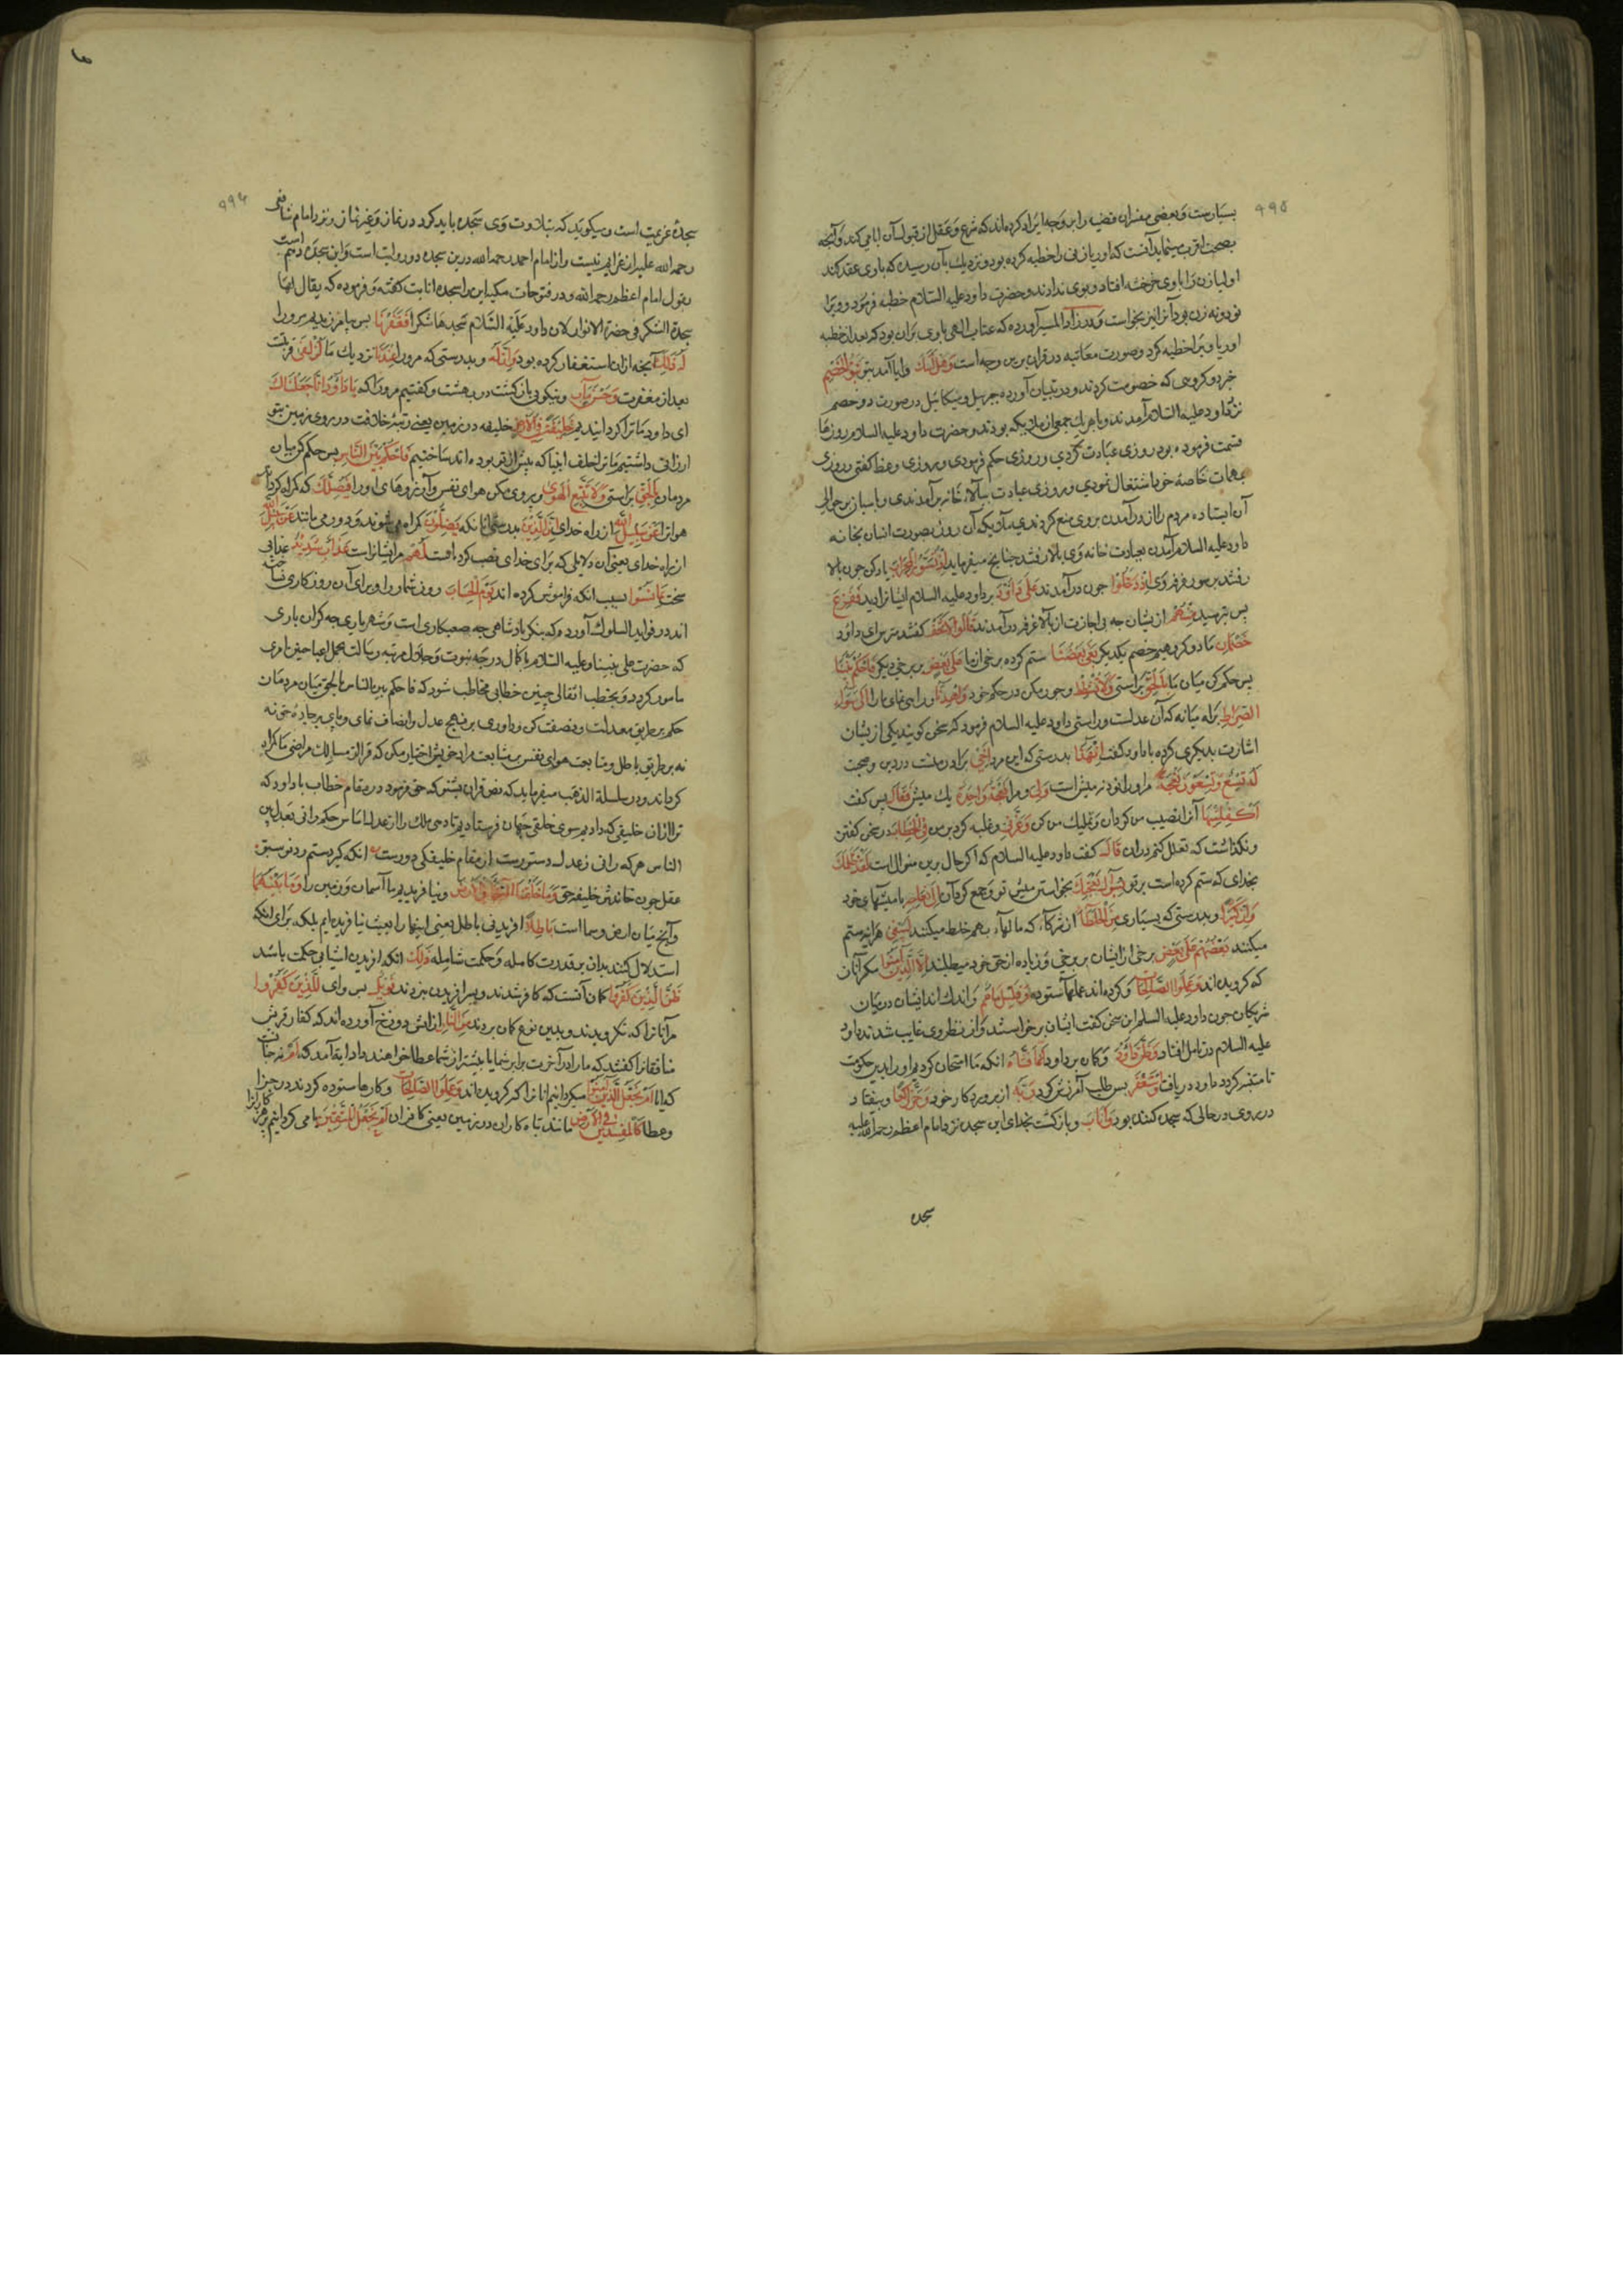 ۹۹۵
بسیارست و بعضی مفسران قضیه را برین وجه ایراد کرده اند که شرع و عقل از قبول آن ابا می کند و آنچه
بصحت اقرب مینماید آنست که اوریا زنی را خطبه کرده بود و نزدیک بآن رسیده که با وی عقد کند
اولیا زن را با وی خرخشه افتاد و بوی ندادند و حضرت داود علیه السلام خطبه فرمود و ویرا
نود و نه زن بود آنرا نیز بخواست و در زاد المسیر آورده که عتاب الهی با وی بران بود که بعد از خطبه
اوریا ویرا خطبه کرد و صورت معاتبه در قران برین وجه است وَهَلْ اَتٰیكَ وایا آمد بتو نَبَؤُا الْخَصْمِ
خبر دو گروهی که خصومت کردند و در تبیان آورده جبریل و میکائیل در صورت دو خصم
نزد داود علیه السلام آمدند و با هر یک جمعی از ملایکه بودند و حضرت داود علیه السلام روزها
قسمت فرموده بود روزی عبادت کردی و روزی حکم فرمودی و روزی وعظ گفتی و روزی
بمهمات خاصهٔ خود اشتغال نمودی و روزی عبادت ببالا خانه برآمدندی و پاسبان برحوالی
آن ایستاده مردم را از درآمدن بروی منع کردندی ملایکه آن روز بصورت انسان بخانه
داود علیه السلام آمدن بعبادت خانه وی بالا رفتند چنانچه میفرماید اِذْ تَسَوَّرُوا الْمِحْرَابَ یاد کن چون بالا
رفتند بر سور غرفه وی اِذْ دَخَلُوْا چون درآمدند عَلٰی دَاوٗدَ بر داود علیه السلام ایشانرا دید فَفَزِعَ
پس بترسید مِنْهُمْ از یشان چه بی اجازت از بالا غرفه درآمدند قَالُوْا لَا تَخَفْ گفتند مترس ای داود
خَصْمٰنِ ما دو گروهیم خصم یکدیگر بَغٰی بَعْضُنَا ستم کرده برخی از ما عَلٰی بَعْضٍ بر برخی دیگر فَاحْکُمْ بَیْنَنَا
پس حکم کن میان ما بِالْحَقِّ براستی وَلَا تُشْطِطْ و جور مکن در حکم خود وَاهْدِنَا و راهی نمای ما را اِلٰی سَوَآءِ
الصِّرَاطِ براه میانه که آن عدلست و راستی داود علیه السلام فرمود که سخن گویید یکی از یشان
اشارت بدیگری کرده با داود گفت اِنَّ هٰذَا بدرستی که این مرد اَخِیْ برادر منست در دین و صحبت
لَهٗ تِسْعٌ وَّتِسْعُوْنَ نَعْجَةً مر او را نود و نه میش است وَلِیَ و مرا نَعْجَةٌ وَّاحِدَةٌ یک میش فَقَالَ پس گفت
اَکْفِلْنِیْهَا آنرا نصیب من گردان و تملیک من کن وَعَزَّنِیْ و غلبه کرد برمن فِی الْخِطَابِ در سخن گفتن
و نگذاشت که تعلل کنم در ان قَالَ گفت داود علیه السلام که اگر حال برین منوال است لَقَدْ ظَلَمَكَ
بخدای که ستم کرده است بر تو بِسُؤَالِ نَعْجَتِكَ بخواستن میش تو و جمع کردن آن اِلٰی نِعَاجِهٖ با میشهای خود
وَاِنَّ کَثِیْرًا و بدرستی که بسیاری مِّنَ الْخُلَطَآءِ از شرکاء که مالهاء بهم خلط میکنند لَیَبْغِیْ هراینه ستم
میکنند بَعْضُهُمْ عَلٰی بَعْضٍ برخی از ایشان بر برخی و زیاده از حق خود میطلبند اِلَّا الَّذِیْنَ اٰمَنُوْا مگر آنان
که گرویده اند وَعَمِلُوا الصّٰلِحٰتِ و کرده اند عملهاء ستوده وَقَلِیْلٌ مَّا هُمْ و اندک اند ایشان در میان
شریکان چون داود علیه السلم این سخن گفت ایشان برخاستند و از نظر وی غایب شدند داود
علیه السلام در تامل افتاد وَظَنَّ دَاوٗدُ و گمان برد داود اَنَّمَا فَتَنّٰهُ انکه ما امتحان کردیم او را بدین حکومت
تا متنبه گردد داود دریافت فَاسْتَغْفَرَ پس طلب آمرزش کرد رَبَّهٗ از پروردگار خود وَخَرَّ رَاکِعًا و بیفتاد
در بروی در حالی که سجده کننده بود وَاَنَابَ و بازگشت بخدای این سجده نزد امام اعظم رحمه الله علیه
سجده
۹۹۴
سجدهٔ عزیمت است و میگوید که بتلاوت وی سجده باید کرد در نماز و غیر نماز و نزد امام شافعی
رحمه الله علیه از عزایم نیست و از امام احمد رحمه الله درین سجده دو روایت است و این سجده دهم است
بقول امام اعظم رحمه الله و در فتوحات مکیه این را سجده انابت گفته و فرموده که یقال لها
سجدة الشکر فی حضرة الانوار لان داود علیه السلام سجدها شکرا فَغَفَرْنَا پس بیامرزیدیم مرورا
لَهٗ ذٰلِكَ آنچه ازان استغفار کرده بود وَاِنَّ لَهٗ و بدرستی که مرورا عِنْدَنَا نزدیک ما لَزُلْفٰی قربتست
بعد از مغفرت وَحُسْنَ مَاٰبٍ و نیکوی بازگشت در بهشت و گفتیم مرورا که یَا دَاوٗدُ اِنَّا جَعَلْنَاكَ
ای داود ما ترا گردانیدیم خَلِیْفَةً فِی الْاَرْضِ خلیفه در زمین یعنی رتبهٔ خلافت در روی زمین بتو
ارزانی داشتیم ما ترا خلف انبیا که پیش از تو بوده اند ساختیم فَاحْکُمْ بَیْنَ النَّاسِ پس حکم کن میان
مردمان بِالْحَقِّ براستی وَلَا تَتَّبِعِ الْهَوٰی و پیروی مکن هوای نفس و آرزوهای او را فَیُضِلَّكَ که گمراه گرداند
هوا ترا عَنْ سَبِیْلِ اللّٰهِ از راه خدای اِنَّ الَّذِیْنَ بدرستی انانکه یَضِلُّوْنَ گمراه می شوند و دور می مانند عَنْ سَبِیْلِ اللّٰهِ
از راه خدای یعنی آن دلایلی که برای خدای نصب کرده است لَهُمْ مرایشانراست عَذَابٌ شَدِیْدٌ عذابی
سخت بِمَا نَسُوْا بسبب انکه فراموش کرده اند یَوْمَ الْحِسَابِ روز شمار را و برای آن روز کاری نساخته
اند در فواید السلوک آورد که بنگر پادشاهی چه صعبکاری است و شهریاری چه گران باری
که حضرت علی نبینا و علیه السلام با کمال درجه نبوت و جلال مرتبه رسالت بحمل اعباء چنین امری
مامور گردد و بخطاب اثقالی چنین خطابی مخاطب شود که فاحکم بین الناس بالحق میان مردمان
حکم بر طریق معدلت و نصفت کن و داوری بر منهج عدل و انصاف نمای و پای بر جاده حق نه
نه بر طریق باطل و متابعت هوای نفس بر متابعت مراد حق اختیار مکن که ترا از مسالک مراضی ما گمراه
گرداند و در سلسلة الذهب میفرماید که نص قران بشنو که حق فرمود در مقام خطاب با داود که
ترا ازان خلیفی که دادیم سوی خلقی جهان فرستادیم تا دهی ملک را ز عدل اساس حکم رانی بعدل بین
الناس هر که را نی ز عدل دستورست از مقام خلیفگی دورست انکه گیرد ستم ز دیو سبق
عقل چون خاندش خلیفه حق وَمَا خَلَقْنَا السَّمَآءَ وَالْاَرْضَ و نیافریدیم ما آسمان و زمین را وَمَا بَیْنَهُمَا
وآنچ میان ارض و سما است بَاطِلًا افریدنی باطل یعنی اینها را بعبث نیافریده ایم بلکه برای انکه
استدلال کنند بدان بر قدرت کامله و حکمت شامله ذٰلِكَ انکه افریدن اشیا بی حکمت باشد
ظَنُّ الَّذِیْنَ کَفَرُوْا گمان آنست که کافر شدند و پس از فریدن مردند فَوَیْلٌ پس وای لِّلَّذِیْنَ کَفَرُوْا
مر آنانرا که نگرویدند و بدین نوع گمان بردند مِنَ النَّارِ از آتش دوزخ آورده اند که کفار قریش
منافقانرا گفتند که ما را در آخرت برابر شما یا بیشتر از شما عطا خواهند داد ایة آمد که اَمْ نه چنانست
که ایا اَمْ نَجْعَلُ الَّذِیْنَ اٰمَنُوْا میگردانیم انانرا که گرویده اند وَعَمِلُوا الصّٰلِحٰتِ و کارها ستوده کردند در جزا
و عطا کَالْمُفْسِدِیْنَ فِی الْاَرْضِ مانند تباه کاران در زمین یعنی کافران اَمْ نَجْعَلُ الْمُتَّقِیْنَ یا می گردانیم پرهیزکارانرا